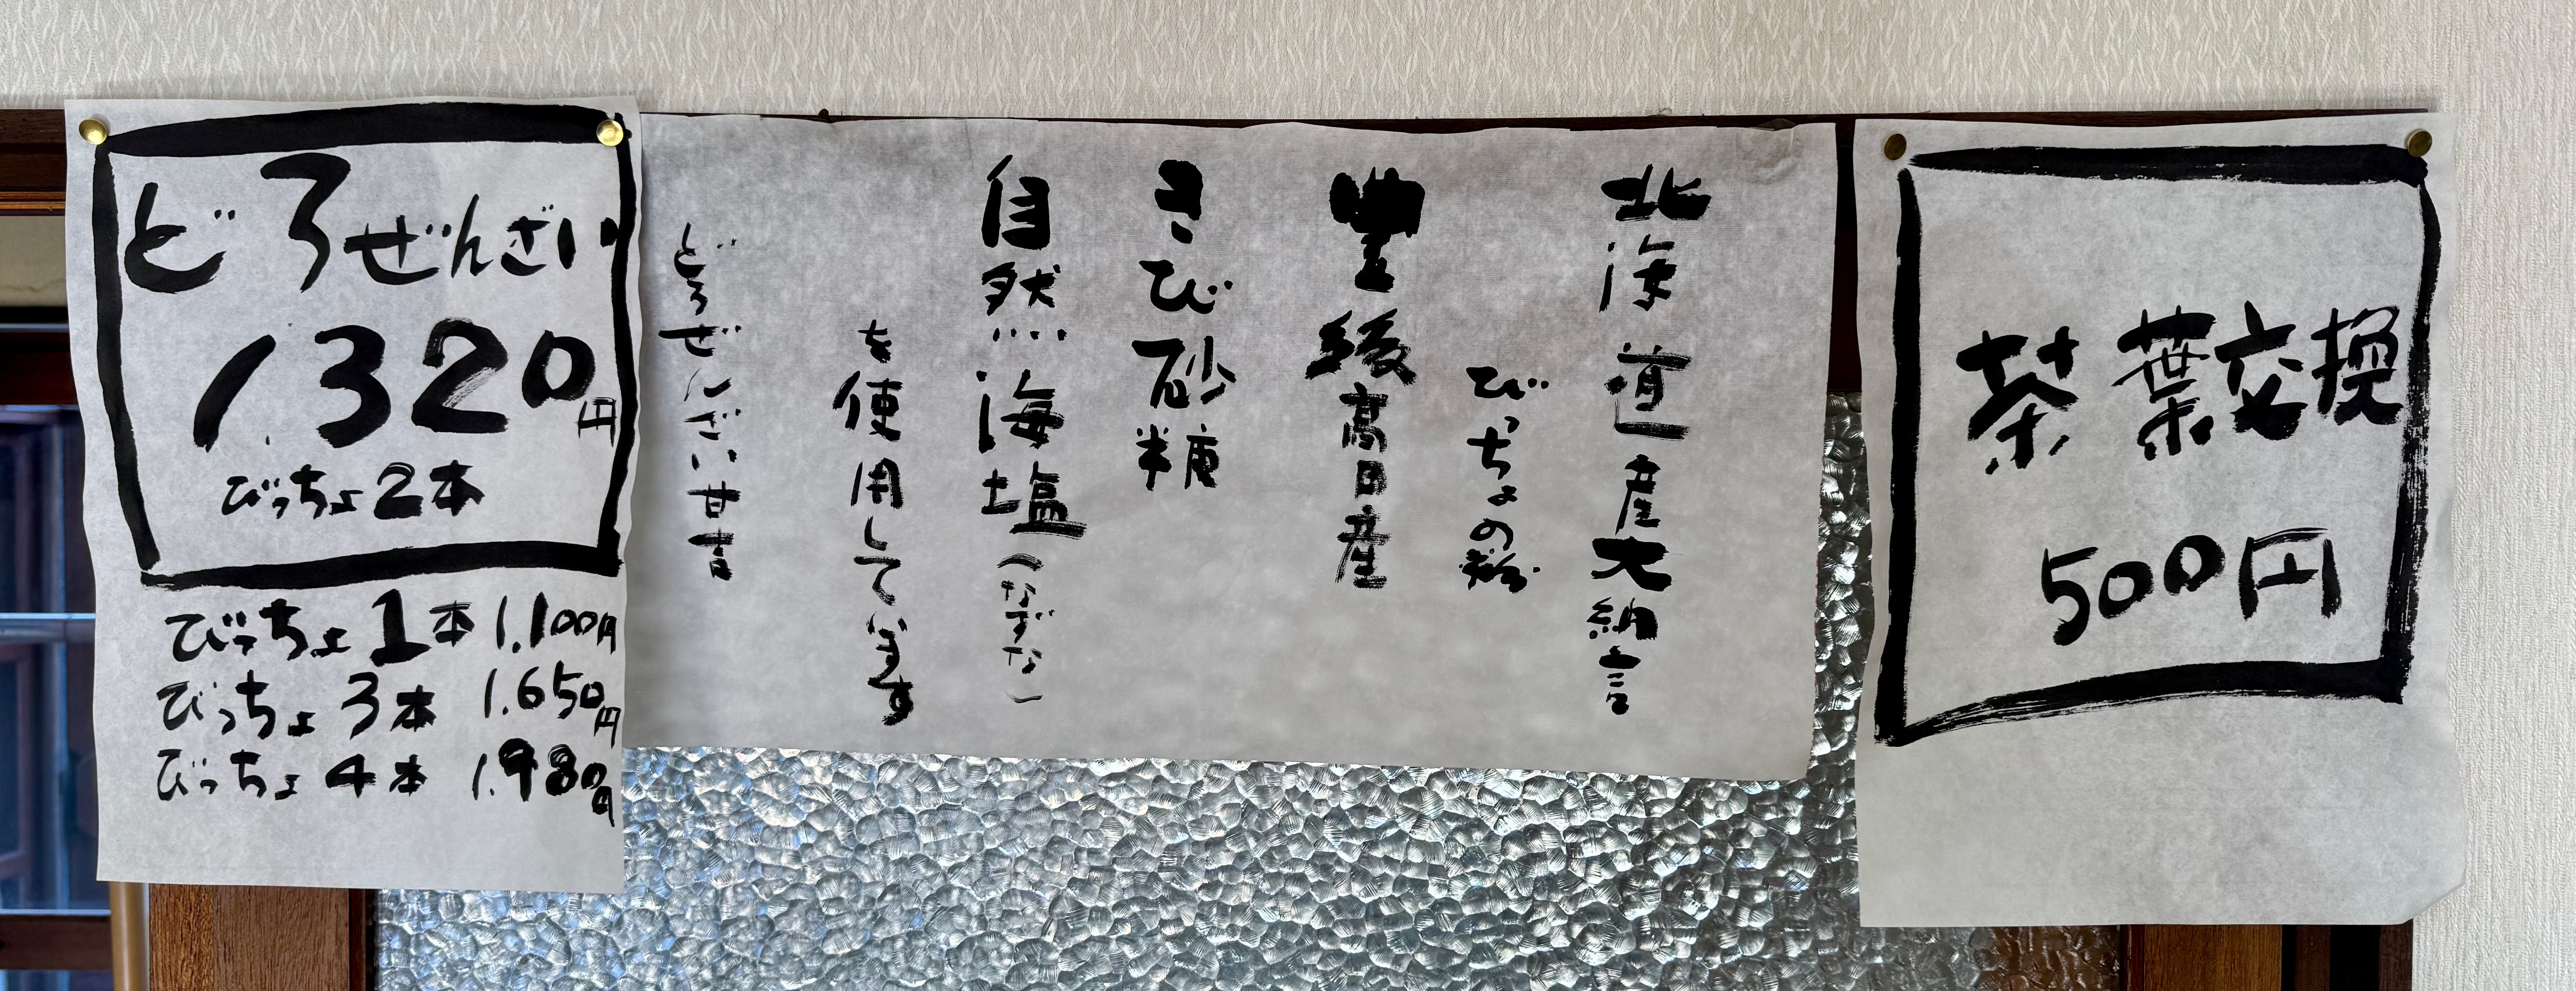 どろぜんざい
1.320円
びっちょ2本
びっちょ1本 1.100円
びっちょ3本 1.650円
びっちょ4本 1.980円
北海道産大納言
びっちょの粉
豊後高田産
きび砂糖
自然海塩(なずな)
を使用しています
どろぜんざい甘吉
茶葉交換
500円